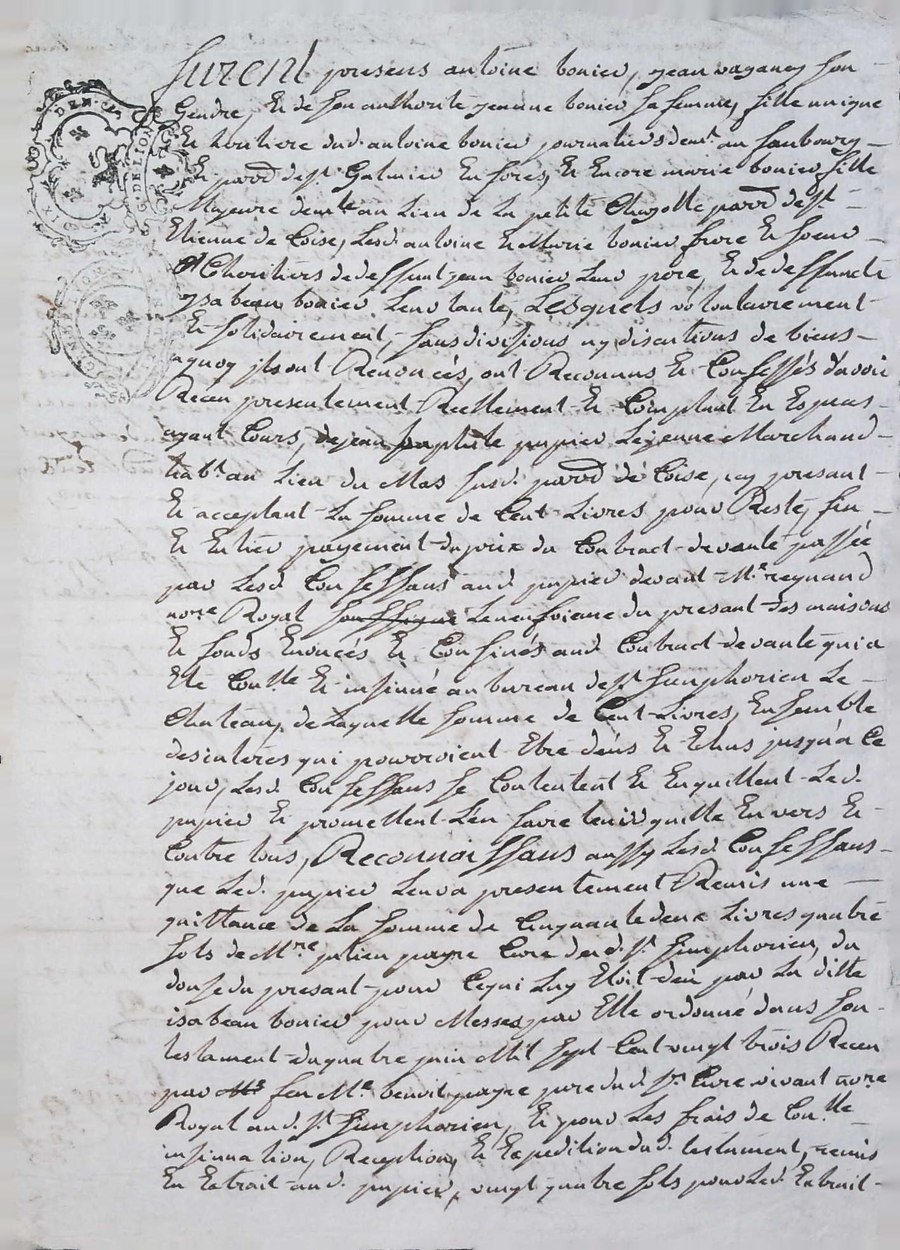 furent presens antoine bonier, jean vaganey son
Gendre, Et de son authorité jeanne bonier sa femme, fille unique
Et heritiere dud. antoine bonier journaliers demt. au faubourg
Et parrd. de st. Galmier En forés, Et Encore marie bonier fille
Majeure demte au Lieu de La petite Chazotte parrd. de st.
Etienne de Coise, Lesd. antoine Et Marie bonier frere Et soeur
Et heritiers de deffunt jean bonier Leur pere, Et de deffuncte
ysabeau bonier Leur tante, Lesquels volontairement
Et solidairement, sans divisions ny discutions de biens
a quoy ils ont Renoncés, ont Reconnus Et Confessés d'avoir
Receu presentement Reellement Et Comptant En Especes
ayant Cours, de jean pupier Lejeune Marchand
habt. au Lieu du Mas susd. parrd. de Coise, icy presant
Et acceptant La somme de Cent Livres pour Reste, fin
Et Entier payement du prix du Contract de vante passée
par Lesd. Confessans aud. pupier devant Me. regnaud
nore Royal Le neufvieme du presant des maisons
Et fonds Enoncés Et Confinés aud. Contract de vante qui a
Eté Coulle Et insinué au bureau de st. simphorien Le
Chateau, de Laquelle somme de Cent Livres, Ensemble
des interes qui pourroient Etre deüs Et Echus jusqu'a Ce
jour, Lesd. Confessans se Contentent Et En quittent Led.
pupier Et promettent L'en faire tenir quitte Envers Et
Contre tous, Reconnoissans aussy Lesd. Confessans
que Led. pupier Leur a presentement Remis une
quittance de La somme de Cinquante deux Livres quatre
sols de Mre. julien payre Curé dud. st. simphorien, du
douse du presant pour Ce qui Luy Etoit deü par La ditte
isabeau bonier pour Messes par Elle ordonné dans son
testament du quatre juin Mil sept Cent vingt trois Receu
par feu Me. benoit payre pere dud. sr. Curé vivant nore
Royal aud. st. simphorien, Et pour Les frais de Coulle
insinuation, Reception, Et Expedition dud. testament, remis
En Extrait aud. pupier, vingt quatre sols pour Led. Extrait